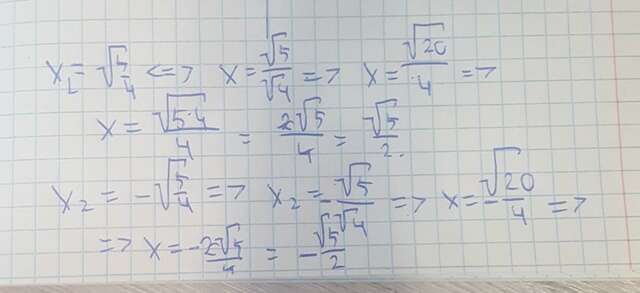 x₁ = √5/4 <=> x = √5/√4 => x = √20/4 =>
x = √5·4/4 = 2√5/4 = √5/2.
x₂ = -√5/4 => x₂ = -√5/√4 => x = -√20/4 =>
=> x = -2√5/4 = -√5/2